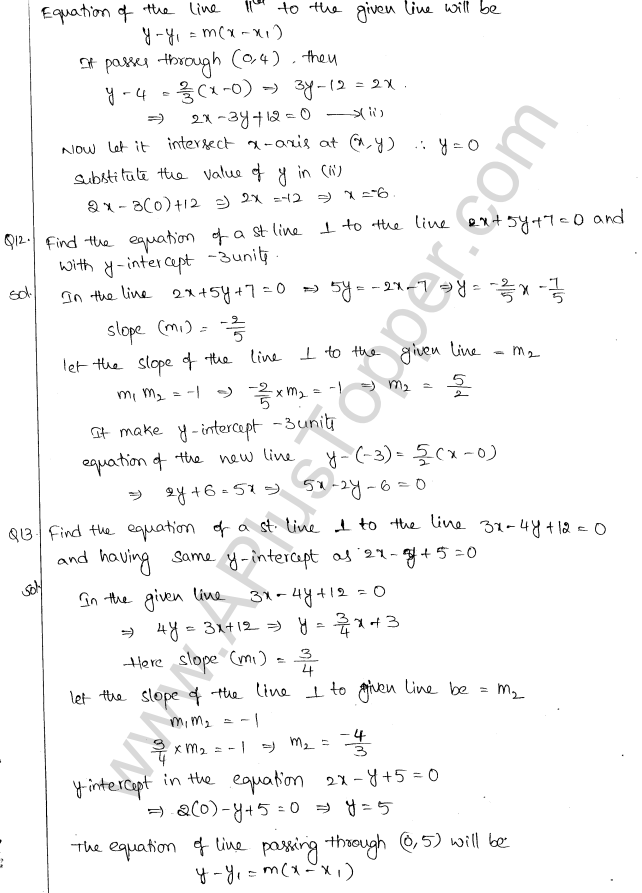 Equation of the line 11lel to the given line will be
y-y₁ = m(x-x₁)
It passes through (0,4), then
y-4 = 2/3 (x-0) ⇒ 3y-12 = 2x.
⇒ 2x-3y+12=0 → (ii)
Now let it intersect x-axis at (x,y) ∴ y=0
Substitute the value of y in (ii)
2x-3(0)+12 ⇒ 2x=-12 ⇒ x=-6.
Q12. Find the equation of a st line ⊥ to the line 2x+5y+7=0 and
with y-intercept -3units.
Sol. In the line 2x+5y+7=0 ⇒ 5y=-2x-7 ⇒ y = -2/5 x - 7/5
slope (m₁) = -2/5
let the slope of the line ⊥ to the given line = m₂
m₁m₂ = -1 ⇒ -2/5 × m₂ = -1 ⇒ m₂ = 5/2
It make y-intercept -3units
equation of the new line y-(-3) = 5/2 (x-0)
⇒ 2y+6=5x ⇒ 5x-2y-6=0
Q13. Find the equation of a st. line ⊥ to the line 3x-4y+12=0
and having same y-intercept as 2x-y+5=0
Sol. In the given line 3x-4y+12=0
⇒ 4y=3x+12 ⇒ y = 3/4 x+3
Here slope (m₁) = 3/4
let the slope of the line ⊥ to given line be = m₂
m₁m₂ = -1
3/4 × m₂ = -1 ⇒ m₂ = -4/3
y-intercept in the equation 2x-y+5=0
⇒ 2(0)-y+5=0 ⇒ y=5
The equation of line passing through (0,5) will be
y-y₁ = m(x-x₁)
www.APlusTopper.com